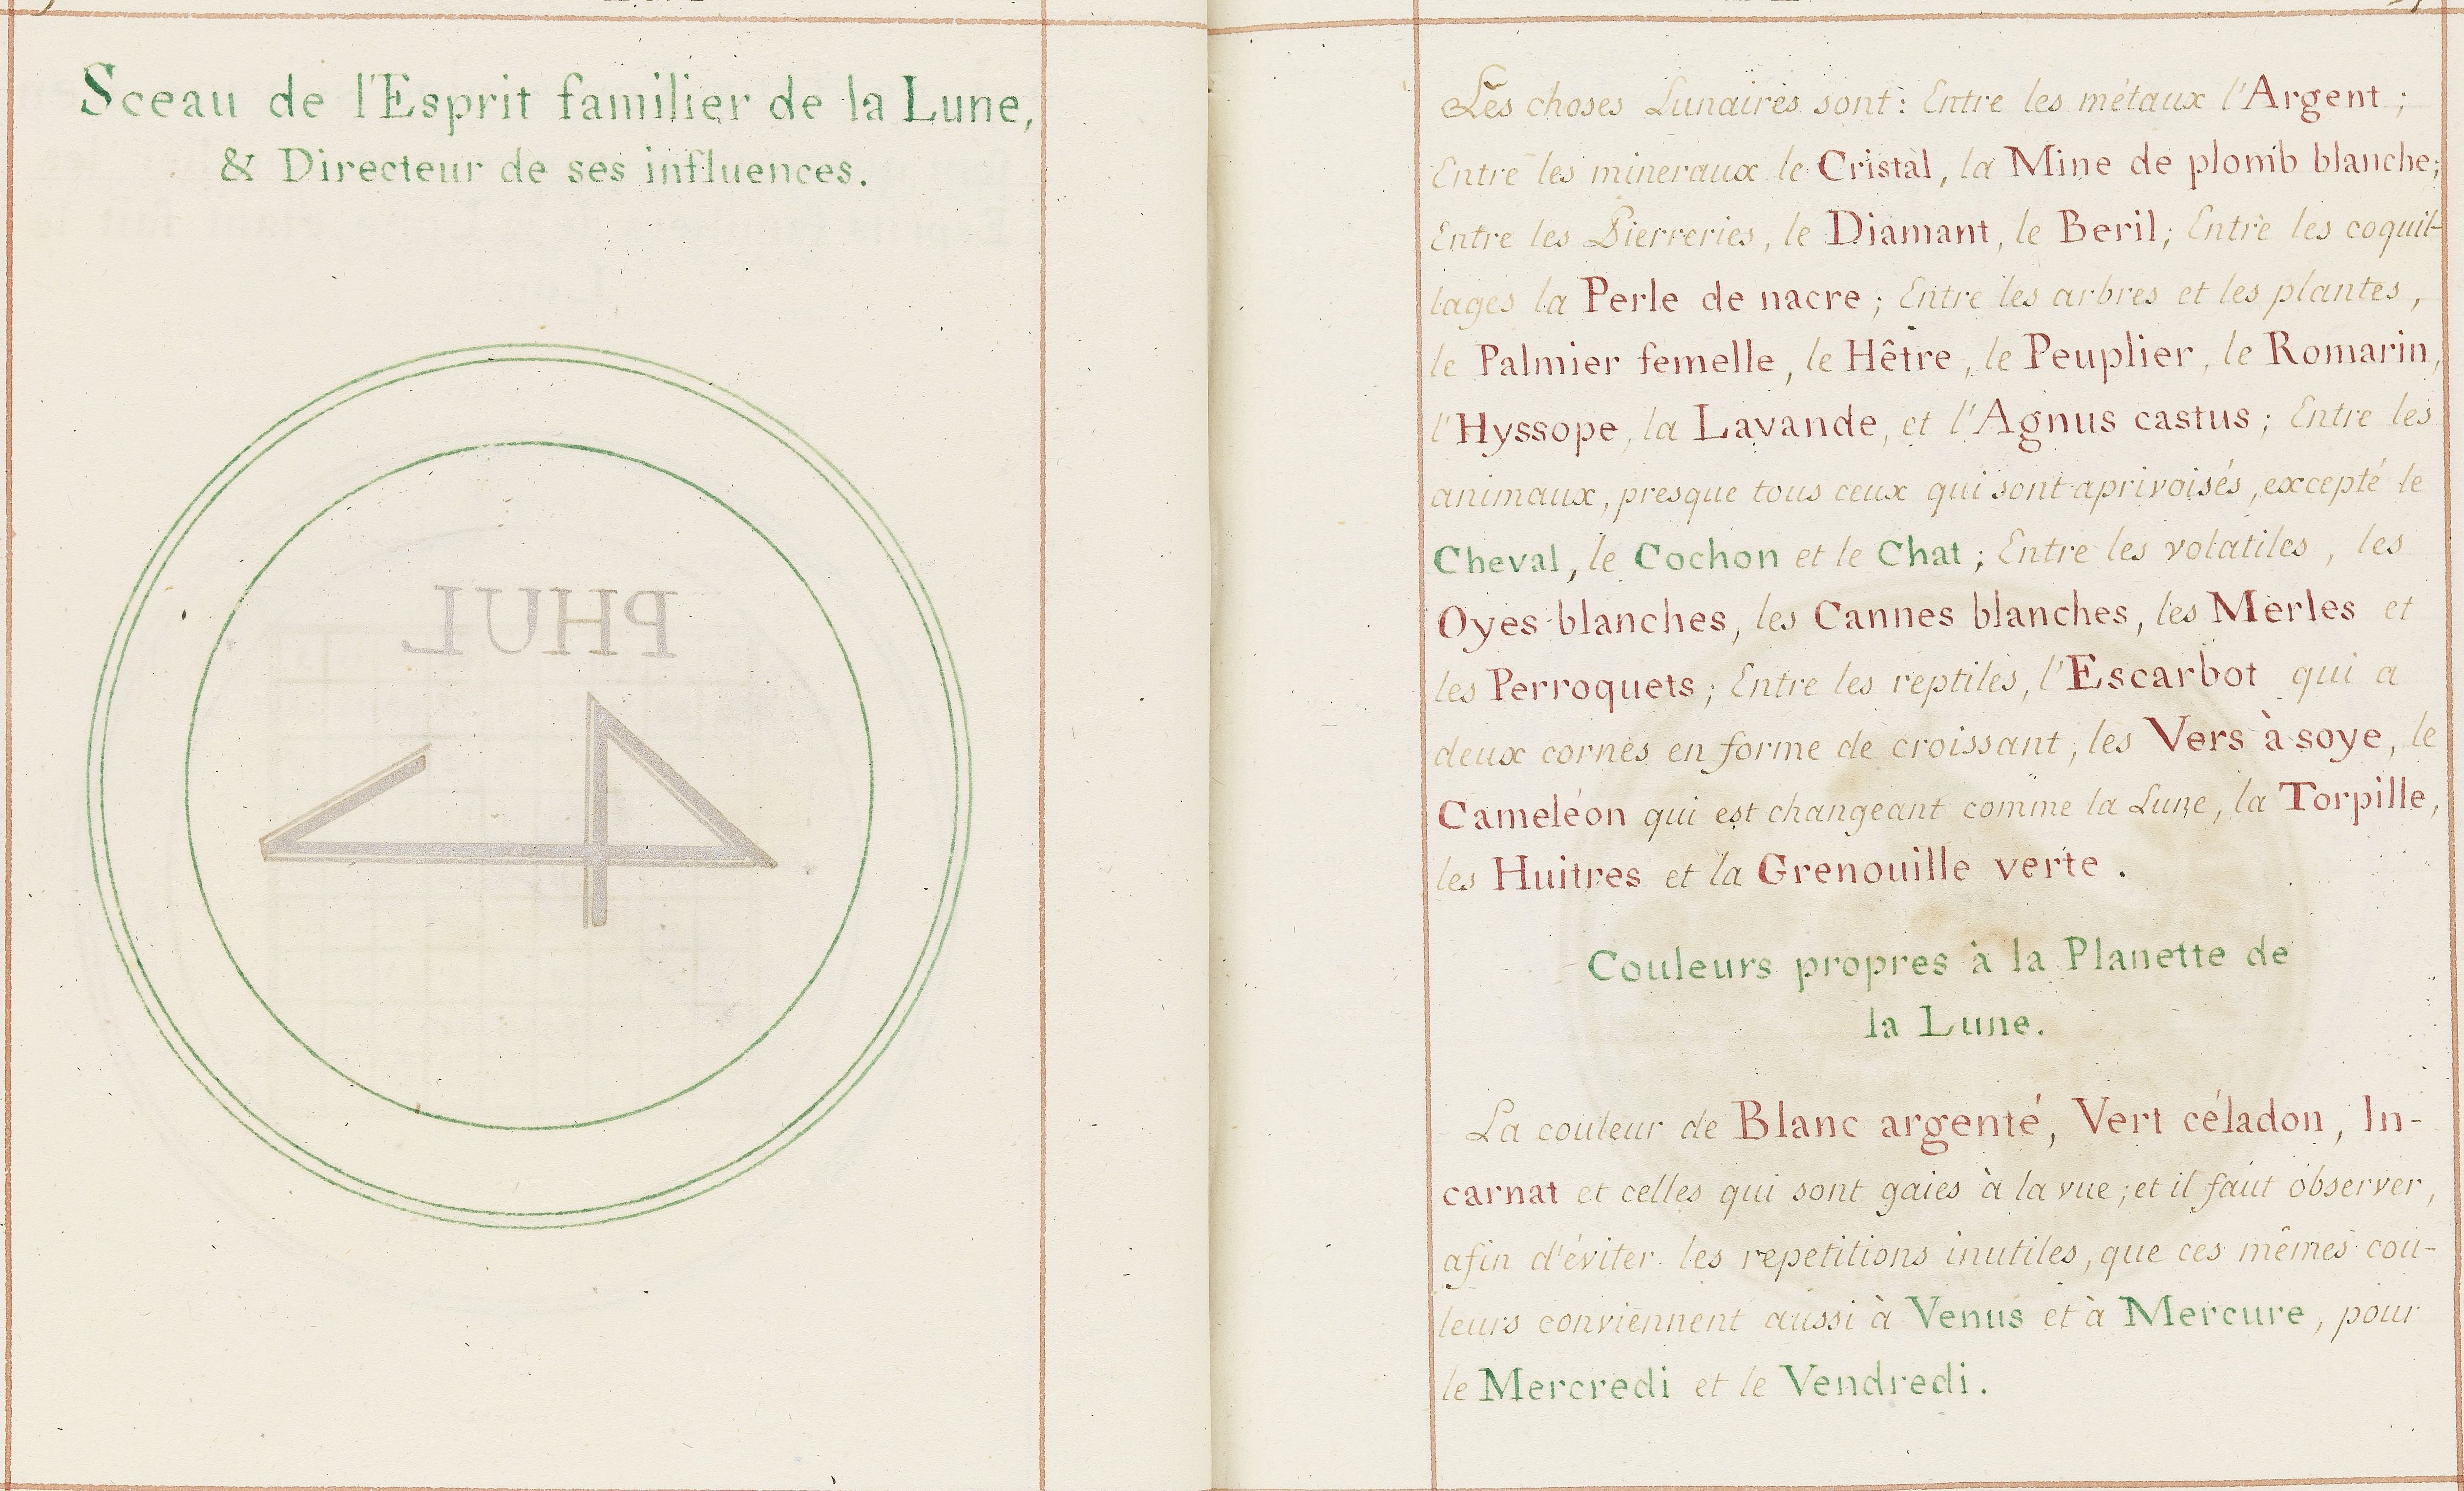 Sceau de l'Esprit familier de la Lune,
& Directeur de ses influences.
PHUL
Les choses Lunaires sont : Entre les métaux l'Argent ;
Entre les mineraux le Cristal, la Mine de plomb blanche;
Entre les Pierreries, le Diamant, le Beril; Entre les coquil-
lages la Perle de nacre ; Entre les arbres et les plantes,
le Palmier femelle, le Hêtre, le Peuplier, le Romarin,
l'Hyssope, la Lavande, et l'Agnus castus ; Entre les
animaux, presque tous ceux qui sont aprivoisés, excepté le
Cheval, le Cochon et le Chat ; Entre les volatiles, les
Oyes blanches, les Cannes blanches, les Merles et
les Perroquets ; Entre les reptiles, l'Escarbot qui a
deux cornes en forme de croissant, les Vers à soye, le
Cameléon qui est changeant comme la Lune, la Torpille,
les Huitres et la Grenouille verte .
Couleurs propres à la Planette de
la Lune.
La couleur de Blanc argenté, Vert céladon, In-
carnat et celles qui sont gaies à la vue ; et il faut observer,
afin d'éviter les repetitions inutiles, que ces mêmes cou-
leurs conviennent aussi à Venus et à Mercure, pour
le Mercredi et le Vendredi.